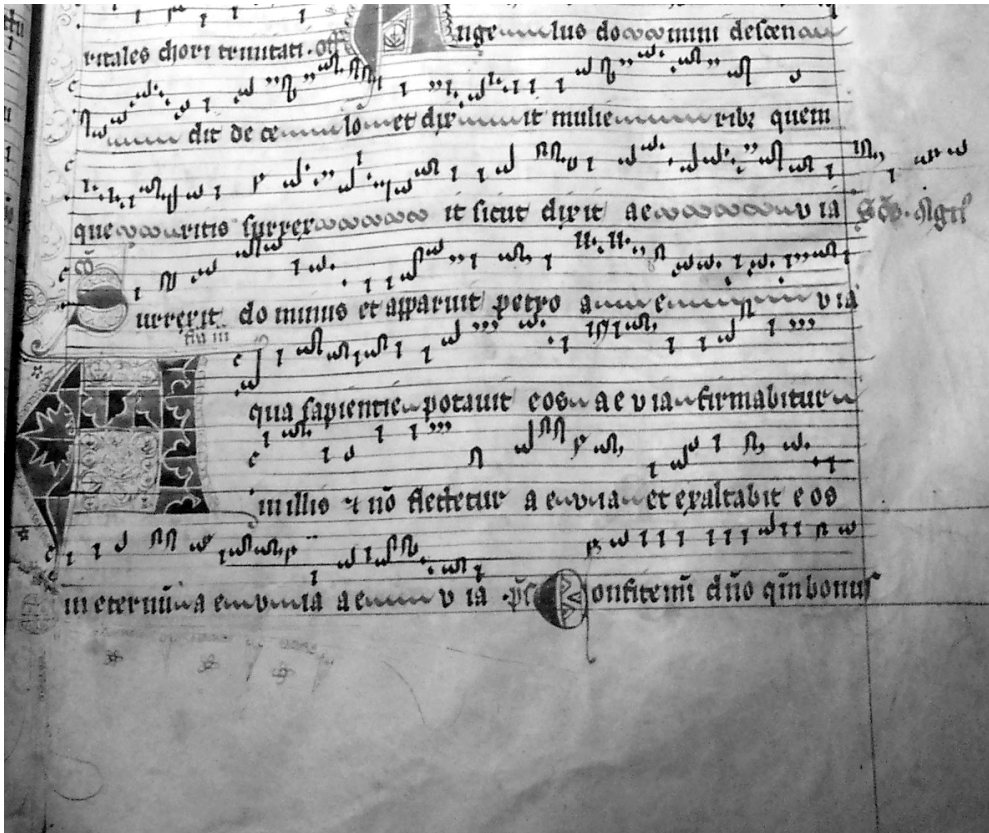 ritales chori trinitati. off Angelus domini descen
dit de celo et dixit mulieribz quem
queritis surrexit sicut dixit aeuia
Surrexit dominus et apparuit petro aeuia
Aqua sapientie potauit eos aeuia firmabitur
in illis & nō flectetur aeuia et exaltabit eos
in eternū aeuia aeuia .ps Confitemī dño qm̄ bonus